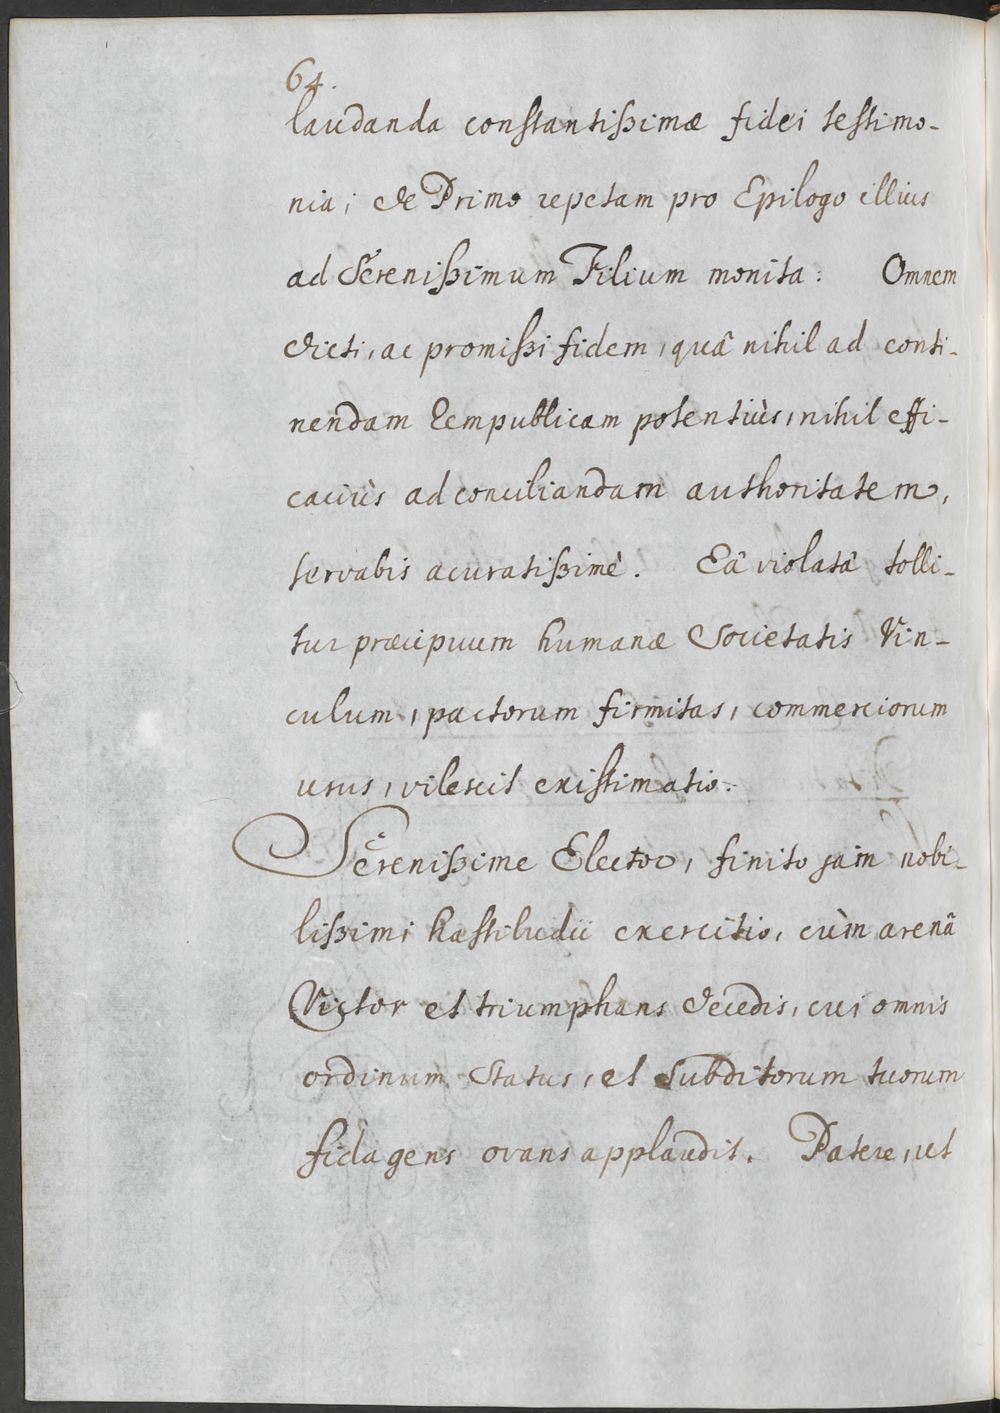 64.
laudanda constantißimæ fidei testimo-
nia; de Primo repetam pro Epilogo illius
ad Serenißimum Filium monita: Omnem
dicti, ac promißi fidem, quâ nihil ad conti-
nendam Rempublicam potentiùs, nihil effi-
caciùs ad conciliandam authoritatem,
servabis acuratißimè. Eâ violatâ tolli-
tur præcipuum humanæ Societatis Vin-
culum, pactorum firmitas, commerciorum
usus, vilescit existimatio.
Serenißime Elector, finito jam nobi-
lißimi hastiludii exercitio, cùm arenâ
Victor et triumphans decedis, cui omnis
ordinum Status, et Subditorum tuorum
fida gens ovans applaudit. Patere, ut